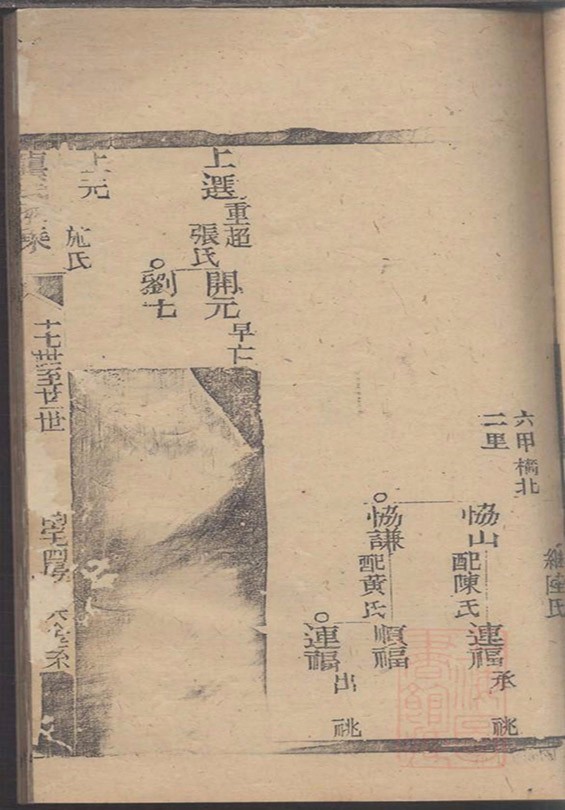 六甲橋北
二里
協山
配陳氏
連福
承祧
協謙
配黃氏
順福
連福
出祧
上選
重超
張氏
開元
早亡
劉七
上元
施氏
十七世至廿一世